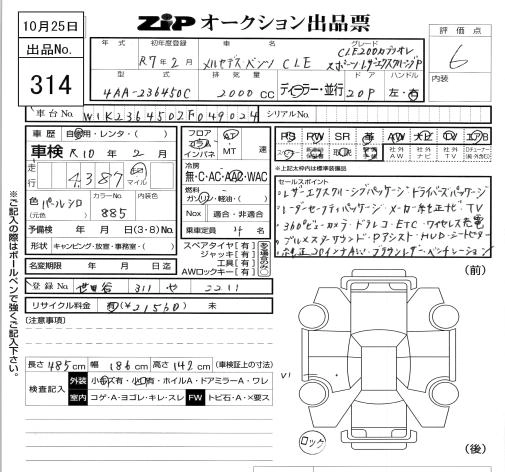 10月25日
出品No.
314
ZIP オークション出品票
評価点
6
内装
年式 初年度登録 車名 グレード
R7年2月 メルセデスベンツ CLE
CLE200カブリオレ
スポーツ レザーエクスクルーシブP
型式 排気量 ドア ハンドル
4AA-236450C 2000cc ディーラー・並行 2DP 左・右
車台No. W1K2364502F049024 シリアルNo.
車歴 自家用・レンタ・( )
車検 R10年2月
走行 4,387 km マイル
色 パールシロ 内装色
(元色) カラーNo. 885
予備検 年 月 日(3・8)No.
形状 キャンピング・放宣・事務室・( )
名変期限 年 月 日迄
フロア コラム インパネ AT MT 速
冷房
無・C・AC・AAC・WAC
燃料
ガソリン・軽油・( )
Nox 適合・非適合
乗車定員 4名
スペアタイヤ[有]
ジャッキ[有]
工具[有]
AWロックキー[有]
PS PW SR 革 AW ナビ TV エアB
社外AW 社外ナビ 社外TV
※上記太枠内は標準装備品
セールスポイント
レザーエクスクルーシブパッケージ ドライバーズパッケージ
レーダーセーフティパッケージ メーカー純正ナビ TV
360°ビューカメラ ドラレコ ETC ワイヤレス充電
ブルメスターサウンド Pアシスト HUD シートヒーター
純正20インチAW ブラウンレザー ベンチレーション
登録No. 世田谷 311 や 2211
リサイクル料金 有(¥21560) 未
(注意事項)
長さ 485cm 幅 186cm 高さ 142cm (車検証上の寸法)
検査記入 外装 小キズ有・小凹有・ホイルA・ドアミラーA・ワレ
室内 コゲ・A・ヨゴレ・キレ・スレ FW トビ石・A・×要ス
(前)
V1
ロック
(後)
※ご記入の際はボールペンで強くご記入下さい。